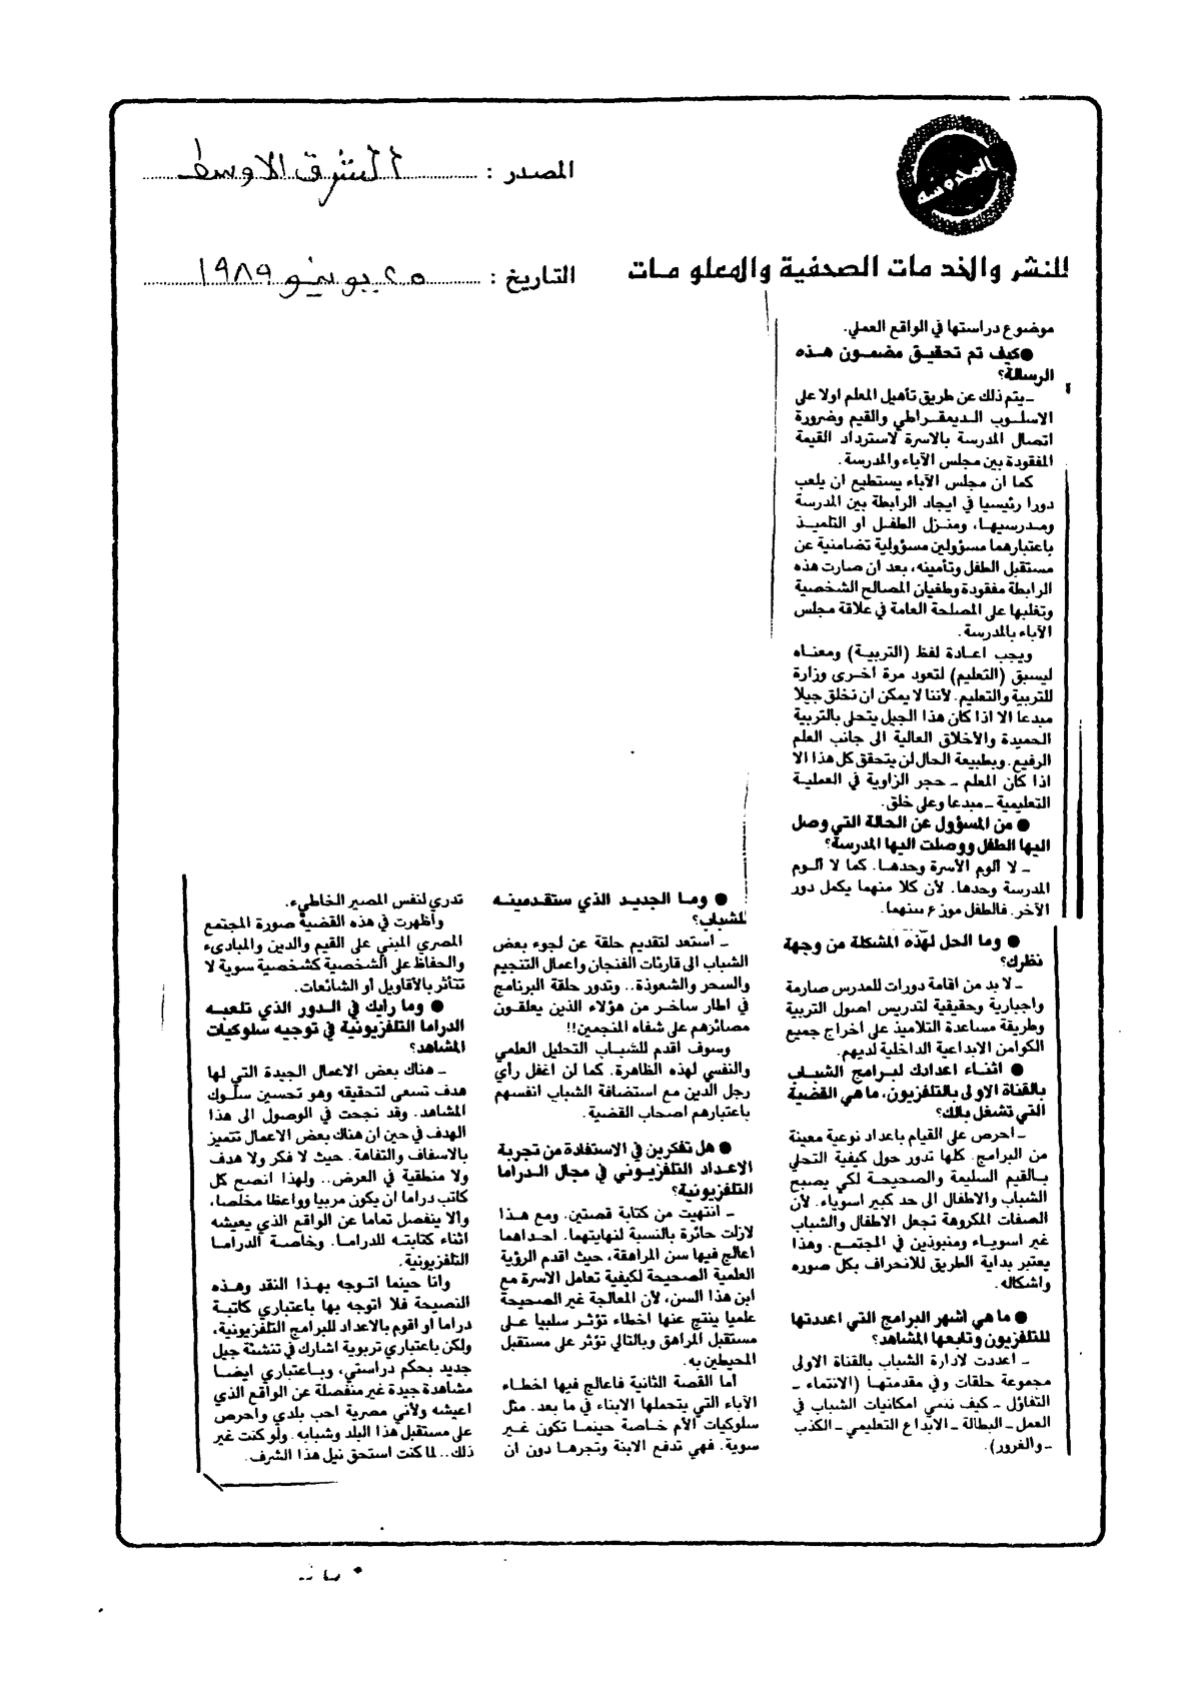 المدوسه
المصدر : الشرق الاوسط
للنشر والخدمات الصحفية والمعلومات
التاريخ : ٢٥ يونيو ١٩٨٩
موضوع دراستها في الواقع العملي.
● كيف تم تحقيق مضمون هذه
الرسالة؟
ـ يتم ذلك عن طريق تأهيل المعلم اولا على
الاسلوب الديمقراطي والقيم وضرورة
اتصال المدرسة بالاسرة لاسترداد القيمة
المفقودة بين مجلس الآباء والمدرسة.
كما ان مجلس الآباء يستطيع ان يلعب
دورا رئيسيا في ايجاد الرابطة بين المدرسة
ومدرسيها، ومنزل الطفل او التلميذ
باعتبارهما مسؤولين مسؤولية تضامنية عن
مستقبل الطفل وتأمينه، بعد ان صارت هذه
الرابطة مفقودة وطغيان المصالح الشخصية
وتغلبها على المصلحة العامة في علاقة مجلس
الآباء بالمدرسة.
ويجب اعادة لفظ (التربية) ومعناه
ليسبق (التعليم) لتعود مرة اخرى وزارة
للتربية والتعليم. لأننا لا يمكن ان نخلق جيلا
مبدعا الا اذا كان هذا الجيل يتحلى بالتربية
الحميدة والأخلاق العالية الى جانب العلم
الرفيع. وبطبيعة الحال لن يتحقق كل هذا الا
اذا كان المعلم ـ حجر الزاوية في العملية
التعليمية ـ مبدعا وعلى خلق.
● من المسؤول عن الحالة التي وصل
اليها الطفل ووصلت اليها المدرسة؟
ـ لا ألوم الأسرة وحدها. كما لا ألوم
المدرسة وحدها. لأن كلا منهما يكمل دور
الآخر. فالطفل موزع بينهما.
● وما الحل لهذه المشكلة من وجهة
نظرك؟
ـ لا بد من اقامة دورات للمدرس صارمة
واجبارية وحقيقية لتدريس اصول التربية
وطريقة مساعدة التلاميذ على اخراج جميع
الكوامن الابداعية الداخلية لديهم.
● اثناء اعدادك لبرامج الشباب
بالقناة الاولى بالتلفزيون، ما هي القضية
التي تشغل بالك؟
ـ احرص على القيام باعداد نوعية معينة
من البرامج. كلها تدور حول كيفية التحلي
بالقيم السليمة والصحيحة لكي يصبح
الشباب والاطفال الى حد كبير اسوياء. لأن
الصفات المكروهة تجعل الاطفال والشباب
غير اسوياء ومنبوذين في المجتمع. وهذا
يعتبر بداية الطريق للانحراف بكل صوره
واشكاله.
● ما هي اشهر البرامج التي اعددتها
للتلفزيون وتابعها المشاهد؟
ـ اعددت لادارة الشباب بالقناة الاولى
مجموعة حلقات وفي مقدمتها (الانتماء ـ
التفاؤل ـ كيف ننمي امكانيات الشباب في
العمل ـ البطالة ـ الابداع التعليمي ـ الكذب
ـ والغرور).
● وما الجديد الذي ستقدمينه
للشباب؟
ـ استعد لتقديم حلقة عن لجوء بعض
الشباب الى قارئات الفنجان واعمال التنجيم
والسحر والشعوذة.. وتدور حلقة البرنامج
في اطار ساخر من هؤلاء الذين يعلقون
مصائرهم على شفاه المنجمين!!
وسوف اقدم للشباب التحليل العلمي
والنفسي لهذه الظاهرة. كما لن اغفل رأي
رجل الدين مع استضافة الشباب انفسهم
باعتبارهم اصحاب القضية.
● هل تفكرين في الاستفادة من تجربة
الاعداد التلفزيوني في مجال الدراما
التلفزيونية؟
ـ انتهيت من كتابة قصتين. ومع هذا
لازلت حائرة بالنسبة لنهايتهما. احداهما
اعالج فيها سن المراهقة، حيث اقدم الرؤية
العلمية الصحيحة لكيفية تعامل الاسرة مع
ابن هذا السن، لأن المعالجة غير الصحيحة
علميا ينتج عنها اخطاء تؤثر سلبيا على
مستقبل المراهق وبالتالي تؤثر على مستقبل
المحيطين به.
أما القصة الثانية فاعالج فيها اخطاء
الآباء التي يتحملها الابناء في ما بعد. مثل
سلوكيات الأم خاصة حينما تكون غير
سوية. فهي تدفع الابنة وتجرها دون ان
تدري لنفس المصير الخاطيء.
وأظهرت في هذه القضية صورة المجتمع
المصري المبني على القيم والدين والمبادىء
والحفاظ على الشخصية كشخصية سوية لا
تتأثر بالأقاويل أو الشائعات.
● وما رايك في الدور الذي تلعبه
الدراما التلفزيونية في توجيه سلوكيات
المشاهد؟
ـ هناك بعض الاعمال الجيدة التي لها
هدف تسعى لتحقيقه وهو تحسين سلوك
المشاهد. وقد نجحت في الوصول الى هذا
الهدف في حين ان هناك بعض الاعمال تتميز
بالاسفاف والتفاهة. حيث لا فكر ولا هدف
ولا منطقية في العرض.. ولهذا انصح كل
كاتب دراما ان يكون مربيا وواعظا مخلصا،
وألا ينفصل تماما عن الواقع الذي يعيشه
اثناء كتابته للدراما. وخاصة الدراما
التلفزيونية.
وانا حينما اتوجه بهذا النقد وهذه
النصيحة فلا اتوجه بها باعتباري كاتبة
دراما او اقوم بالاعداد للبرامج التلفزيونية،
ولكن باعتباري تربوية اشارك في تنشئة جيل
جديد بحكم دراستي، وباعتباري ايضا
مشاهدة جيدة غير منفصلة عن الواقع الذي
اعيشه ولأني مصرية احب بلدي واحرص
على مستقبل هذا البلد وشبابه. ولو كنت غير
ذلك.. لما كنت استحق نيل هذا الشرف.